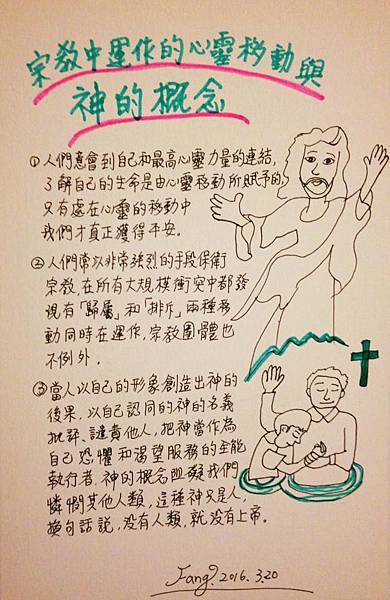 宗教中運作的心靈移動與
神的概念
① 人們意會到自己和最高心靈力量的連結,
了解自己的生命是由心靈移動所賦予的,
只有處在心靈的移動中
我們才真正獲得平安。
② 人們常以非常強烈的手段保衛
宗教,在所有大規模衝突中都發
現有「歸屬」和「排斥」兩種移
動同時在運作,宗教團體也
不例外.
③ 當人以自己的形象創造出神的
後果,以自己認同的神的名義
批評、譴責他人,把神當作為
自己恐懼和渴望服務的全能
執行者,神的概念阻礙我們
憐憫其他人類,這種神只是人,
換句話說,没有人類,就没有上帝.
Fang. 2016. 3.20